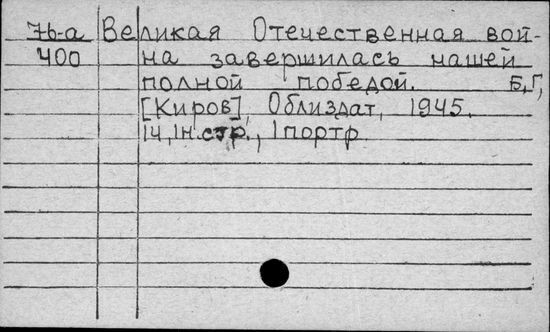 76-а Великая Отечественная вой-
400 на завершилась нашей
полной победой. Б,Г,
[Киров], Облиздат, 1945.
14,1н.стр., 1портр